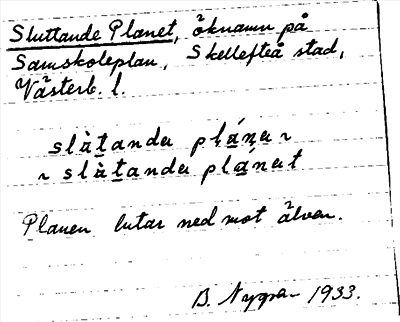 Sluttande Planet, öknamn på
Samskoleplan, Skellefteå stad,
Västerb. l.
slàt̲andeɩ pḷáṇeɩ ~
~ slàt̲andeɩ pla̲net
Planen lutar ned mot älven.
B. Nygren 1933.